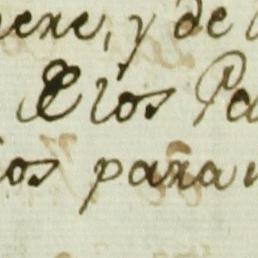 nere, y de
Elos Pa
os para